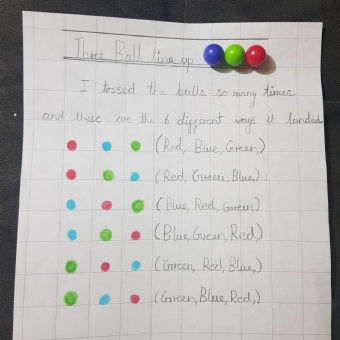 Three Ball line up
I tossed the balls so many times
and these are the 6 different ways it landed.
(Red, Blue, Green,)
(Red, Green, Blue,).
(Blue, Red, Green,)
(Blue, Green, Red,)
(Green, Red, Blue,)
(Green, Blue, Red,)